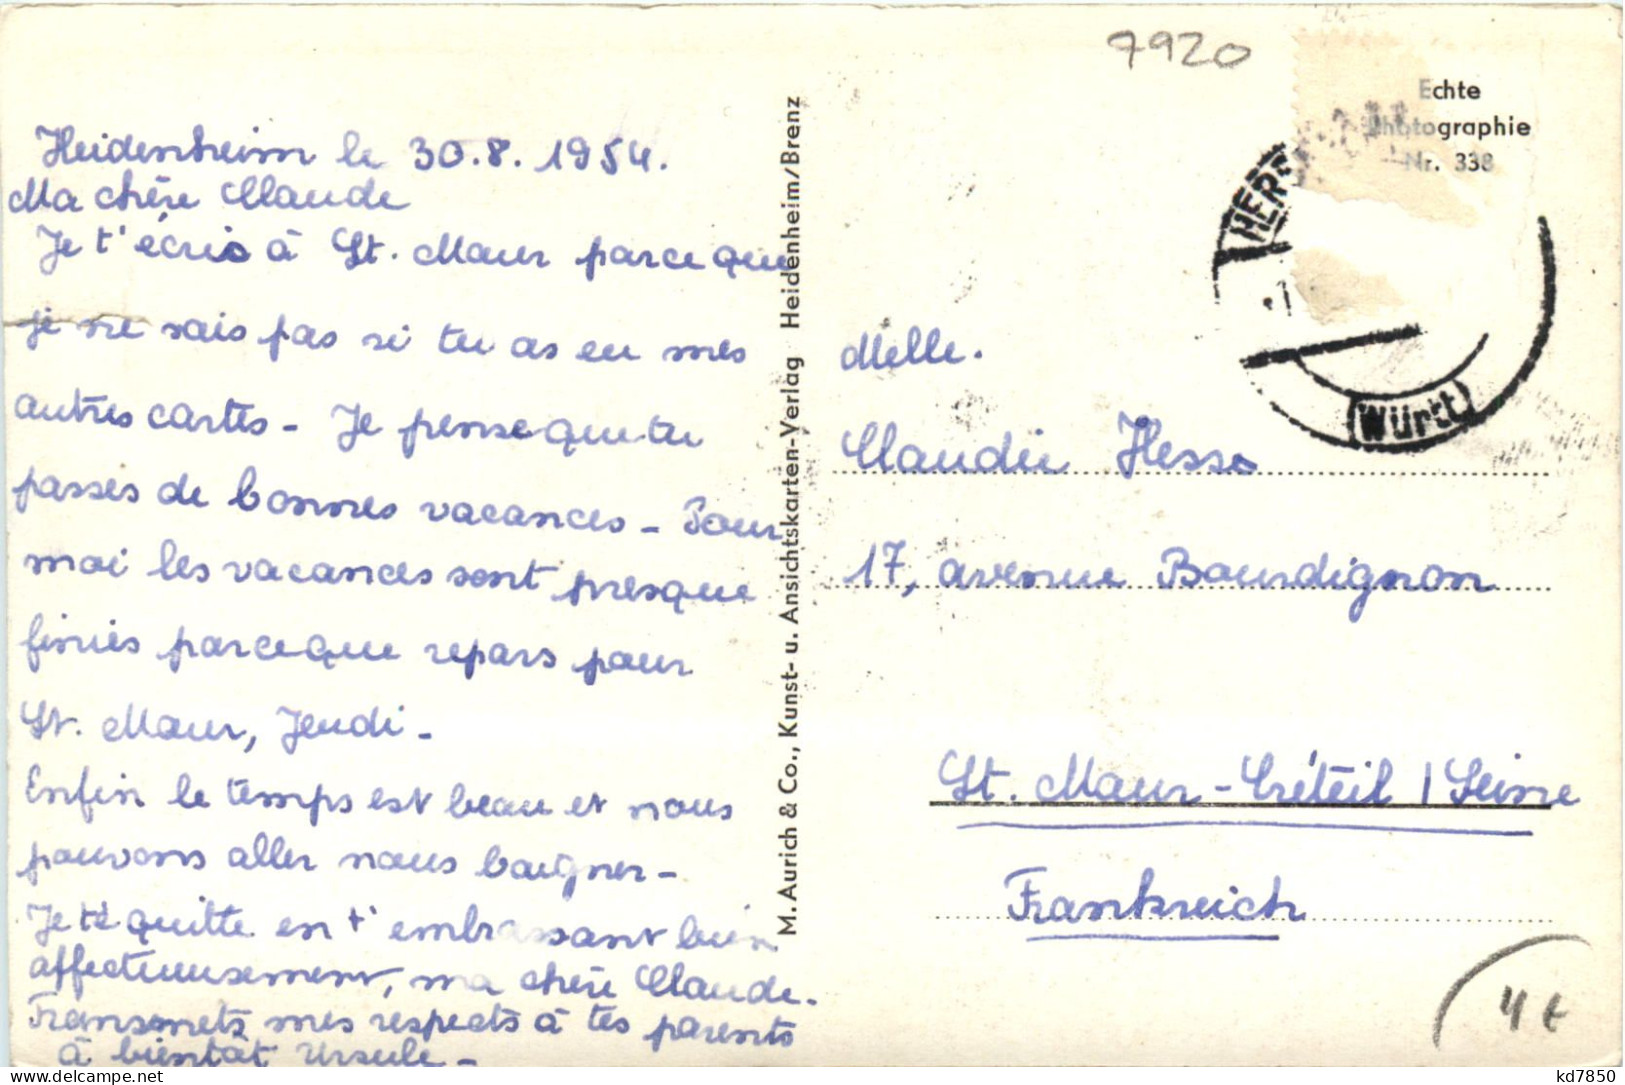 7920
Echte
Photographie
Nr. 338
Heidenheim le 30.8.1954.
Ma chère Claude
Je t'écris à St. Maur parceque
je ne sais pas si tu as eu mes
autres cartes - Je pense que tu
passes de bonnes vacances - Pour
moi les vacances sont presque
finies parceque repars pour
St. Maur, Jeudi -
Enfin le temps est beau et nous
pouvons aller nous baigner -
Je te quitte en t'embrassant bien
affectueusement, ma chère Claude.
Transmets mes respects à tes parents
à bientôt Ursule -
M. Aurich & Co., Kunst- u. Ansichtskarten-Verlag Heidenheim/Brenz
HER
(Württ)
Melle.
Claudie Hesse
17, avenue Bourdignon
St. Maur - Créteil / Seine
Frankreich
4 €
kd7850